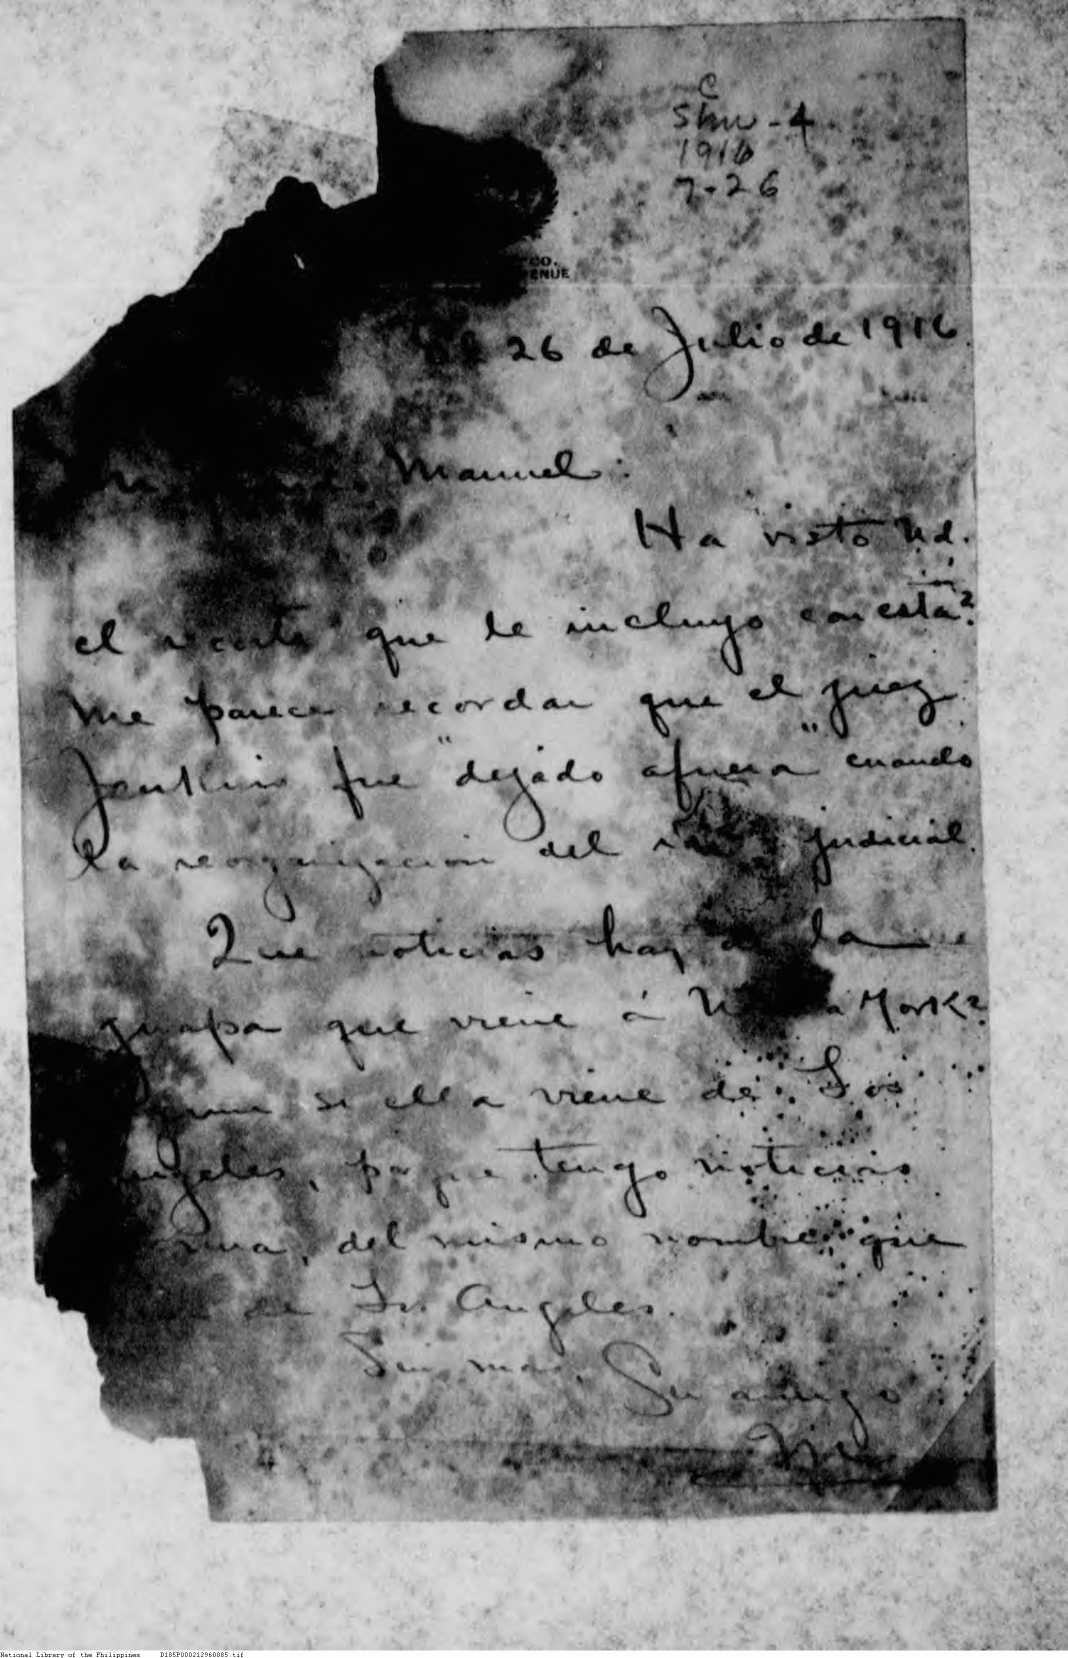 C
Shw-4
1916
7-26
CO.
ENUE
26 de Julio de 1916.
Manuel:
Ha visto Ud.
el recorte que le incluyo con esta?
Me parece recordar que el juez
Jenkins fue "dejado afuera" cuando
la reorganizacion del judicial.
Que noticias hay de la
guapa que viene á York?
si ella viene de Los
Angeles, porque tengo noticias
del mismo nombre que
de Los Angeles.
Sin mas, Su amigo
National Library of the Philippines D185P000212960085.tif